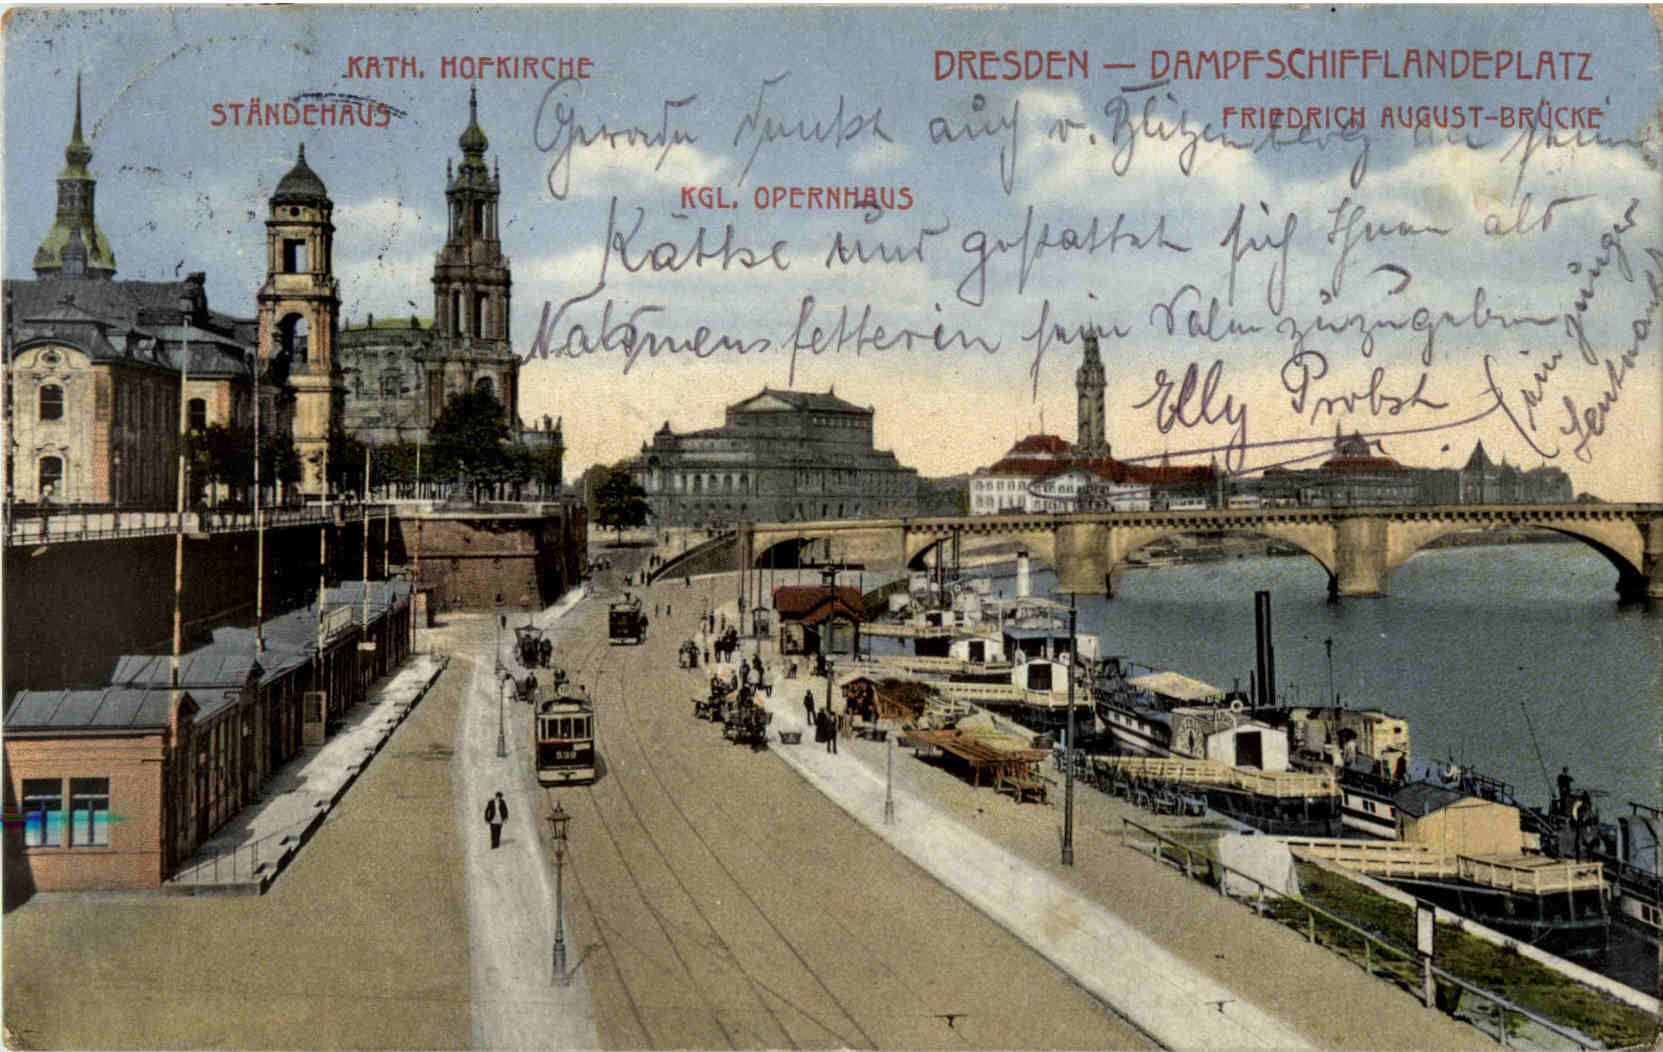 KATH. HOFKIRCHE
STÄNDEHAUS
DRESDEN — DAMPFSCHIFFLANDEPLATZ
FRIEDRICH AUGUST-BRÜCKE
KGL. OPERNHAUS
Gerade denkt auch v. Blitzenberg an seine
Käthe und gestattet sich Ihnen als
Namensfetterin sein Valen zuzugeben
Elly Probst
ein junger